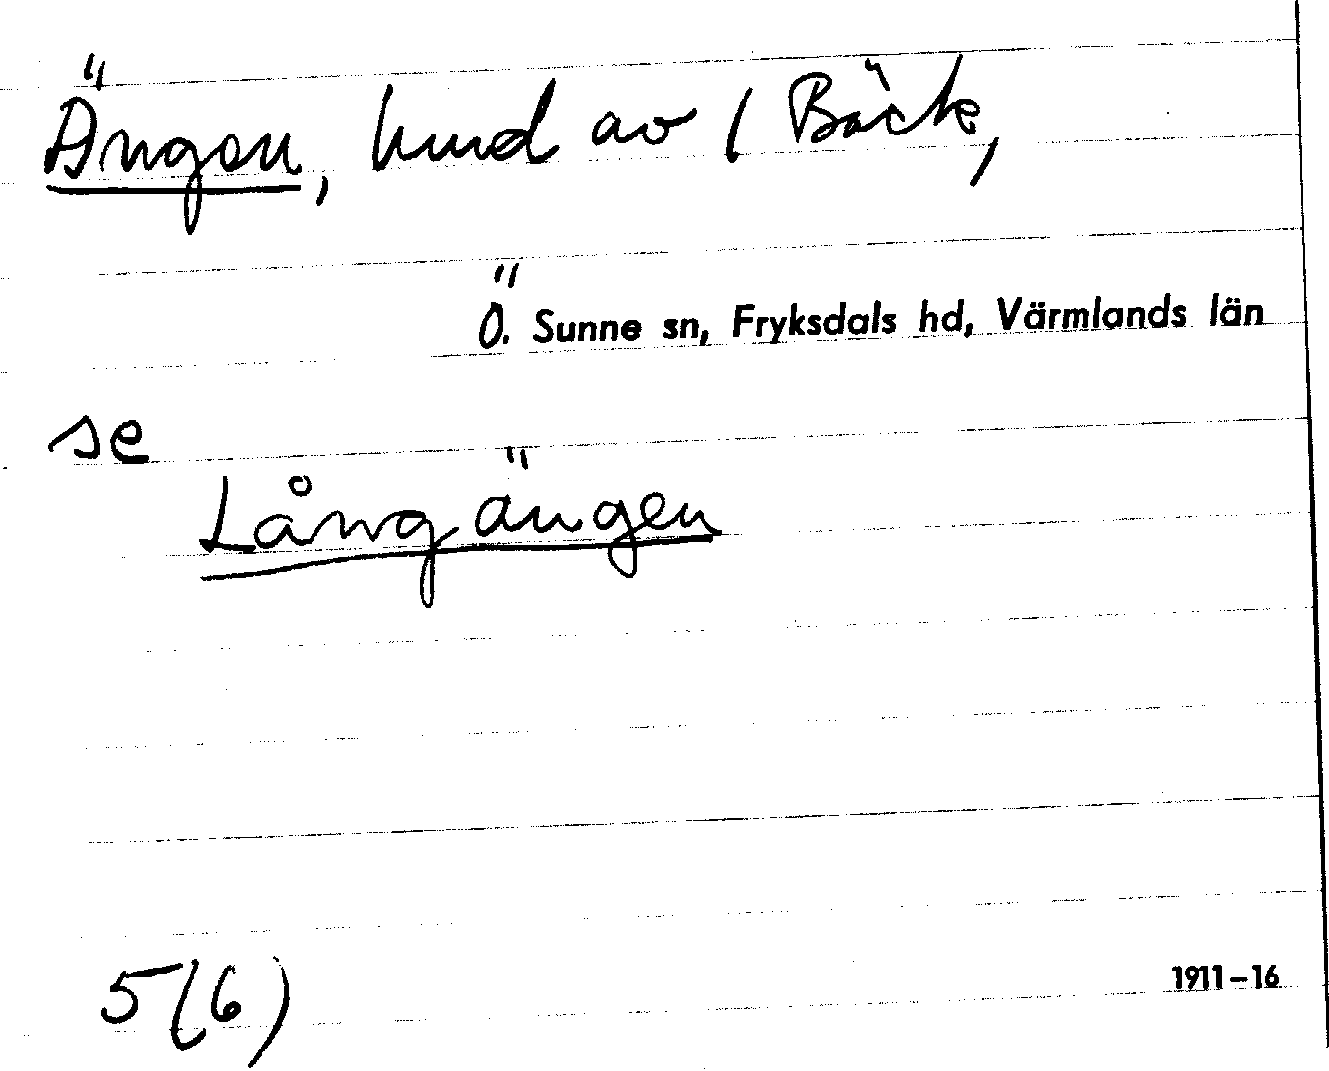 Ängen, hmd av 1 Bäck,
Ö. Sunne sn, Fryksdals hd, Värmlands län
se
Långängen
5(6)
1911-16